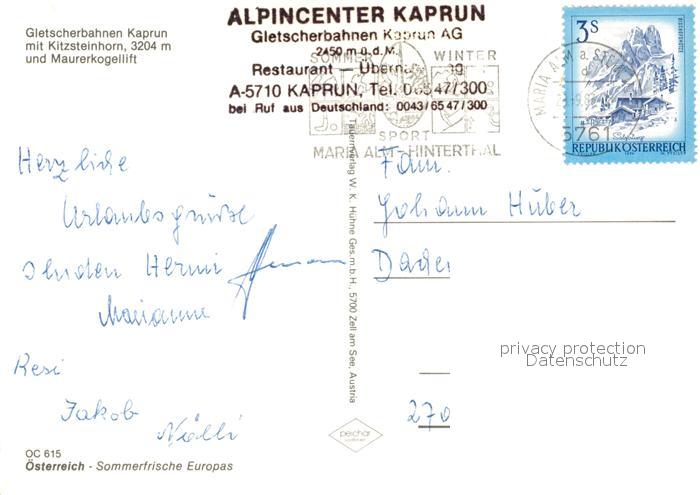 Gletscherbahnen Kaprun
mit Kitzsteinhorn, 3204 m
und Maurerkogellift
ALPINCENTER KAPRUN
Gletscherbahnen Kaprun AG
2450 m ü.d.M.
Restaurant —
A-5710 KAPRUN, Tel. 06547/300
bei Ruf aus Deutschland: 0043/6547/300
SOMMER WINTER
SPORT
MARIA ALM - HINTERTHAL
MARIA ALM a. St
5761
3S
REPUBLIK ÖSTERREICH
Herzliche
Urlaubsgrüße
senden Hermi
Marianne
Resi
Jakob
Fam.
Johann Huber
270
privacy protection
Datenschutz
Tauernverlag W. K. Hühne Ges.m.b.H., 5700 Zell am See, Austria
peichar
OC 615
Österreich - Sommerfrische Europas